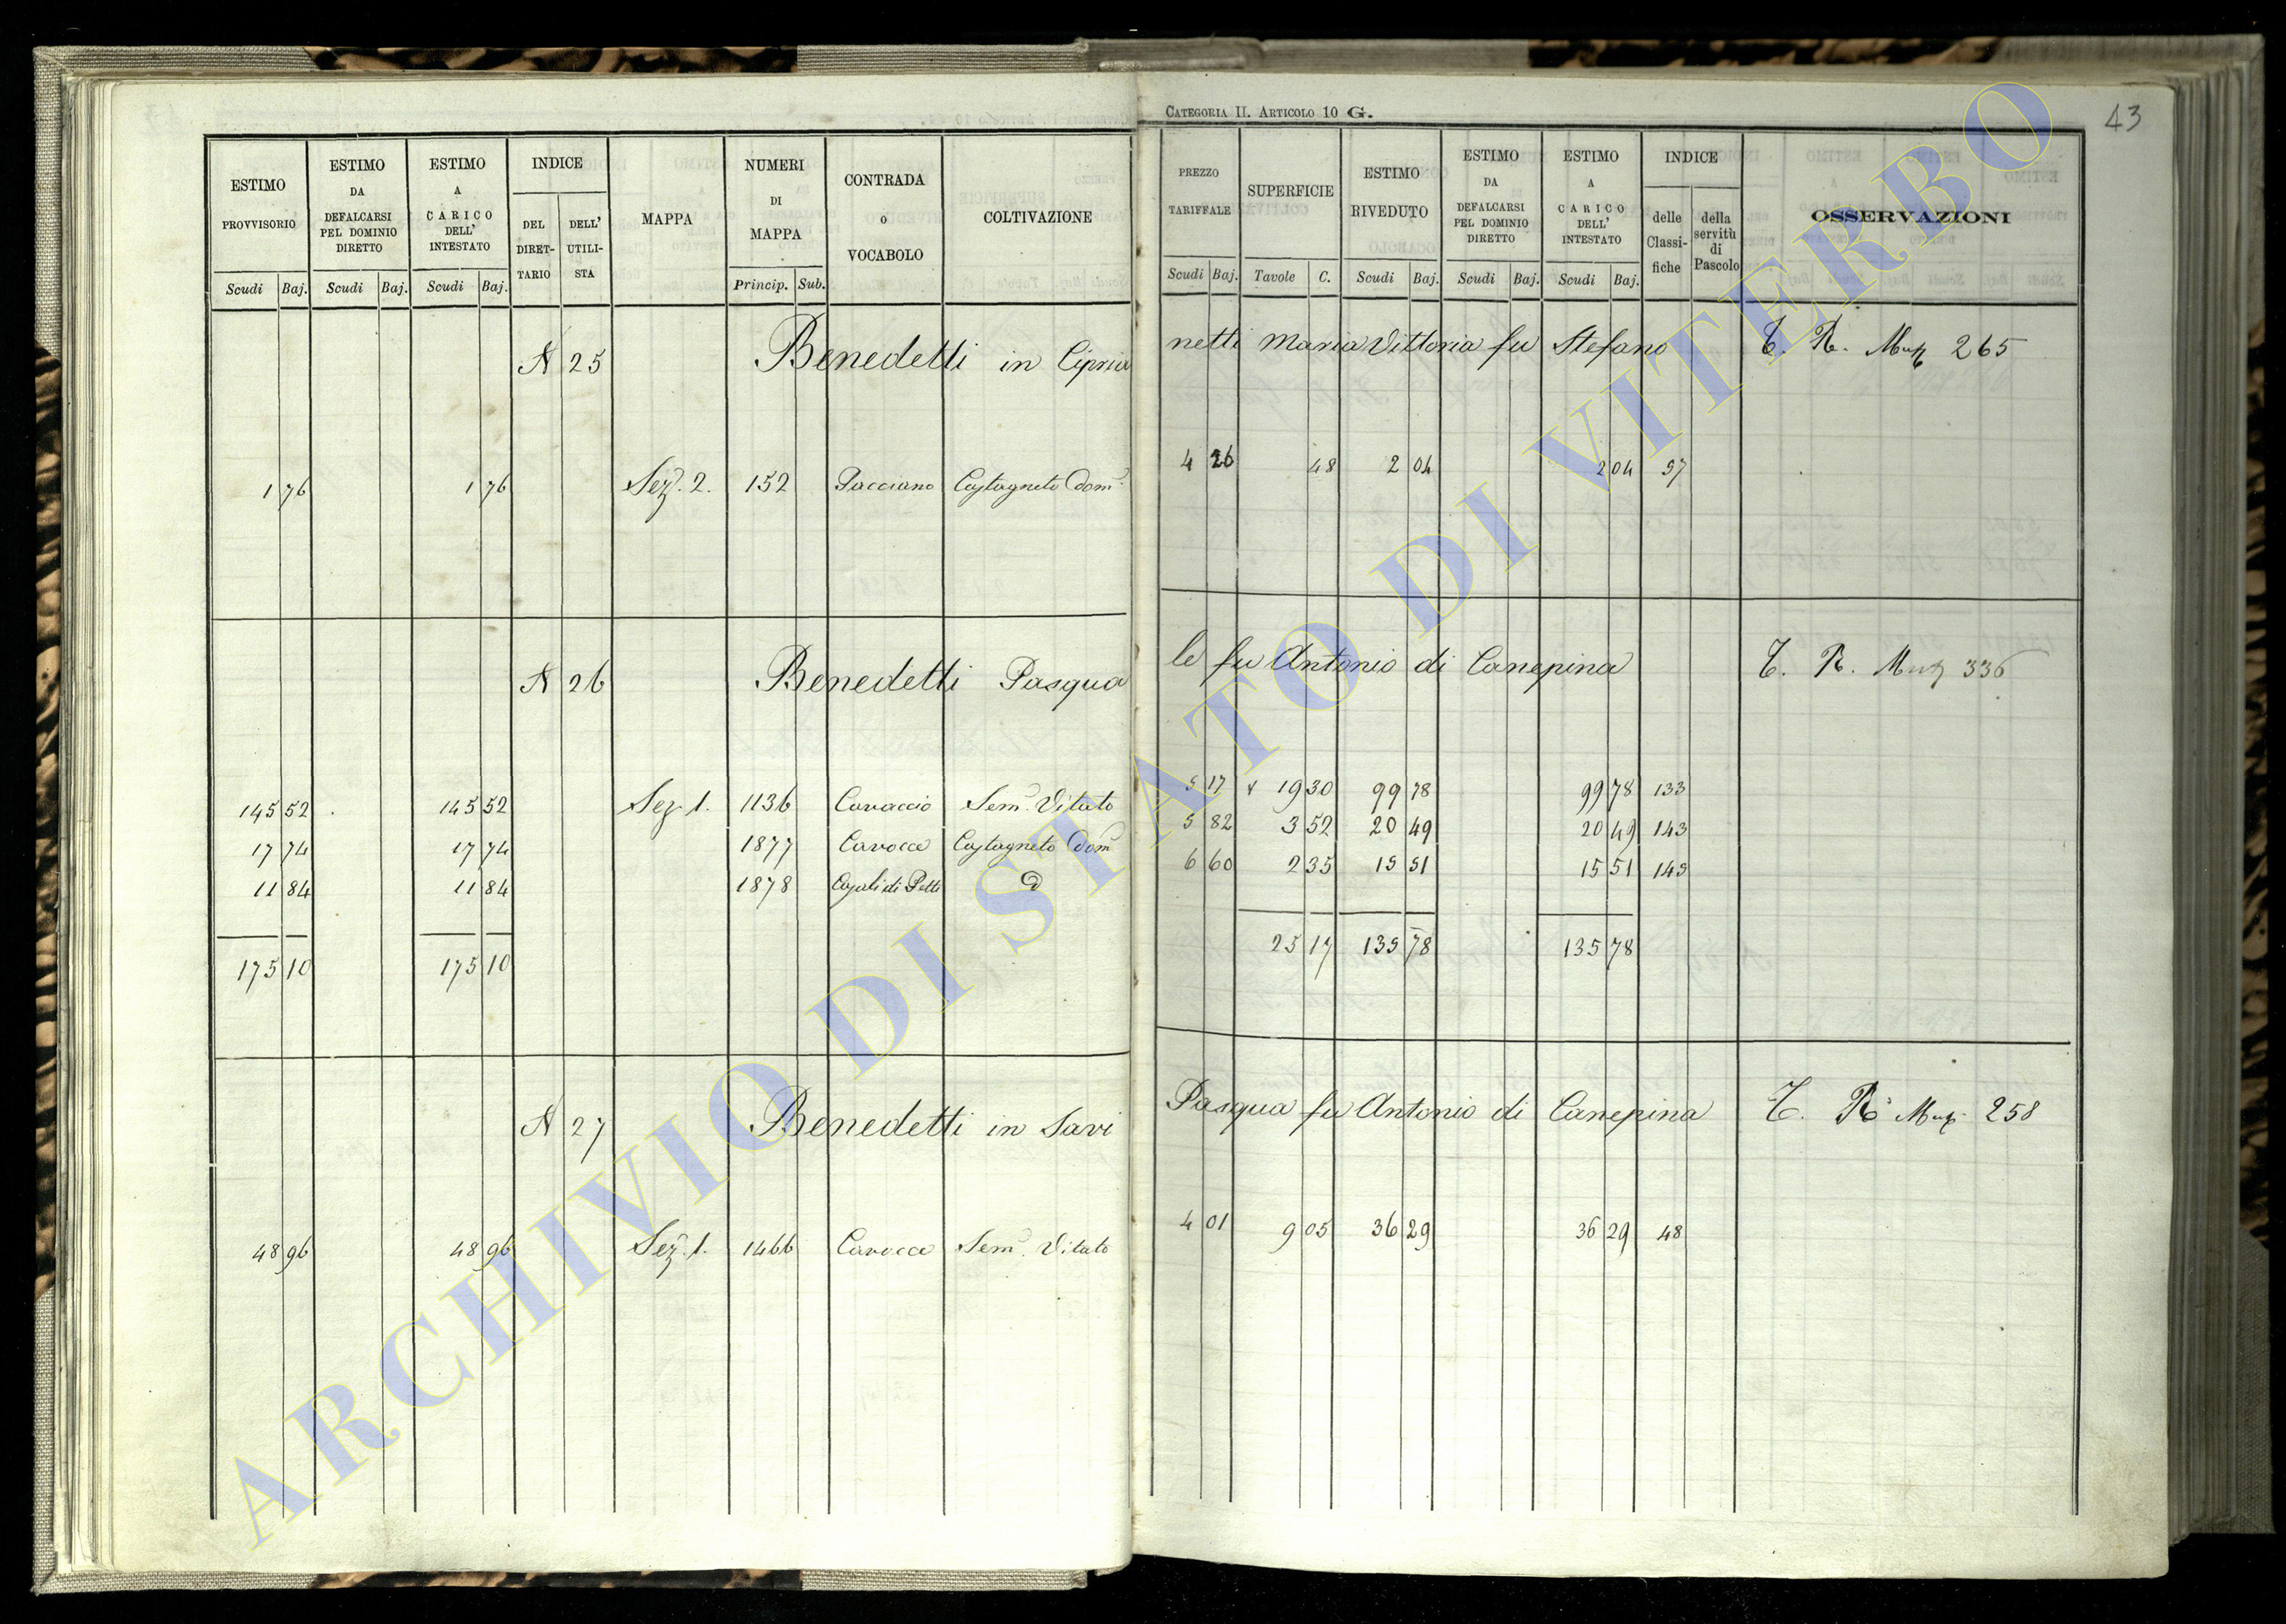 CATEGORIA II. ARTICOLO 10 G.
43
ESTIMO PROVVISORIO Scudi Baj.
ESTIMO DA DEFALCARSI PEL DOMINIO DIRETTO Scudi Baj.
ESTIMO A CARICO DELL' INTESTATO Scudi Baj.
INDICE DEL DIRET-TARIO DELL' UTILI-STA
MAPPA
NUMERI DI MAPPA Princip. Sub.
CONTRADA o VOCABOLO
COLTIVAZIONE
PREZZO TARIFFALE Scudi Baj.
SUPERFICIE Tavole C.
ESTIMO RIVEDUTO Scudi Baj.
ESTIMO DA DEFALCARSI PEL DOMINIO DIRETTO Scudi Baj.
ESTIMO A CARICO DELL' INTESTATO Scudi Baj.
INDICE delle Classi-fiche della servitù di Pascolo
OSSERVAZIONI
N 25 Benedetti in Cipria netti Maria Vittoria fu Stefano T. R. 265
1 76 1 76 Sez. 2. 152 Pacciano Castagneto Dom. 4 26 48 2 04 2 04 57
N 26 Benedetti Pasqua le fu Antonio di Canepina T. R. 336
145 52 145 52 Sez. 1. 1136 Covaccio Sem. Vitato 5 17 19 30 99 78 99 78 133
17 74 17 74 1877 Cavocce Castagneto Dom. 5 82 3 52 20 49 20 49 143
11 84 11 84 1878 Casali di 6 60 2 35 15 51 15 51 145
175 10 175 10 25 17 135 78 135 78
N 27 Benedetti in Savi Pasqua fu Antonio di Canepina T. R. 258
48 96 48 96 Sez. 1. 1466 Cavocce Sem. Vitato 4 01 9 05 36 29 36 29 48
ARCHIVIO DI STATO DI VITERBO